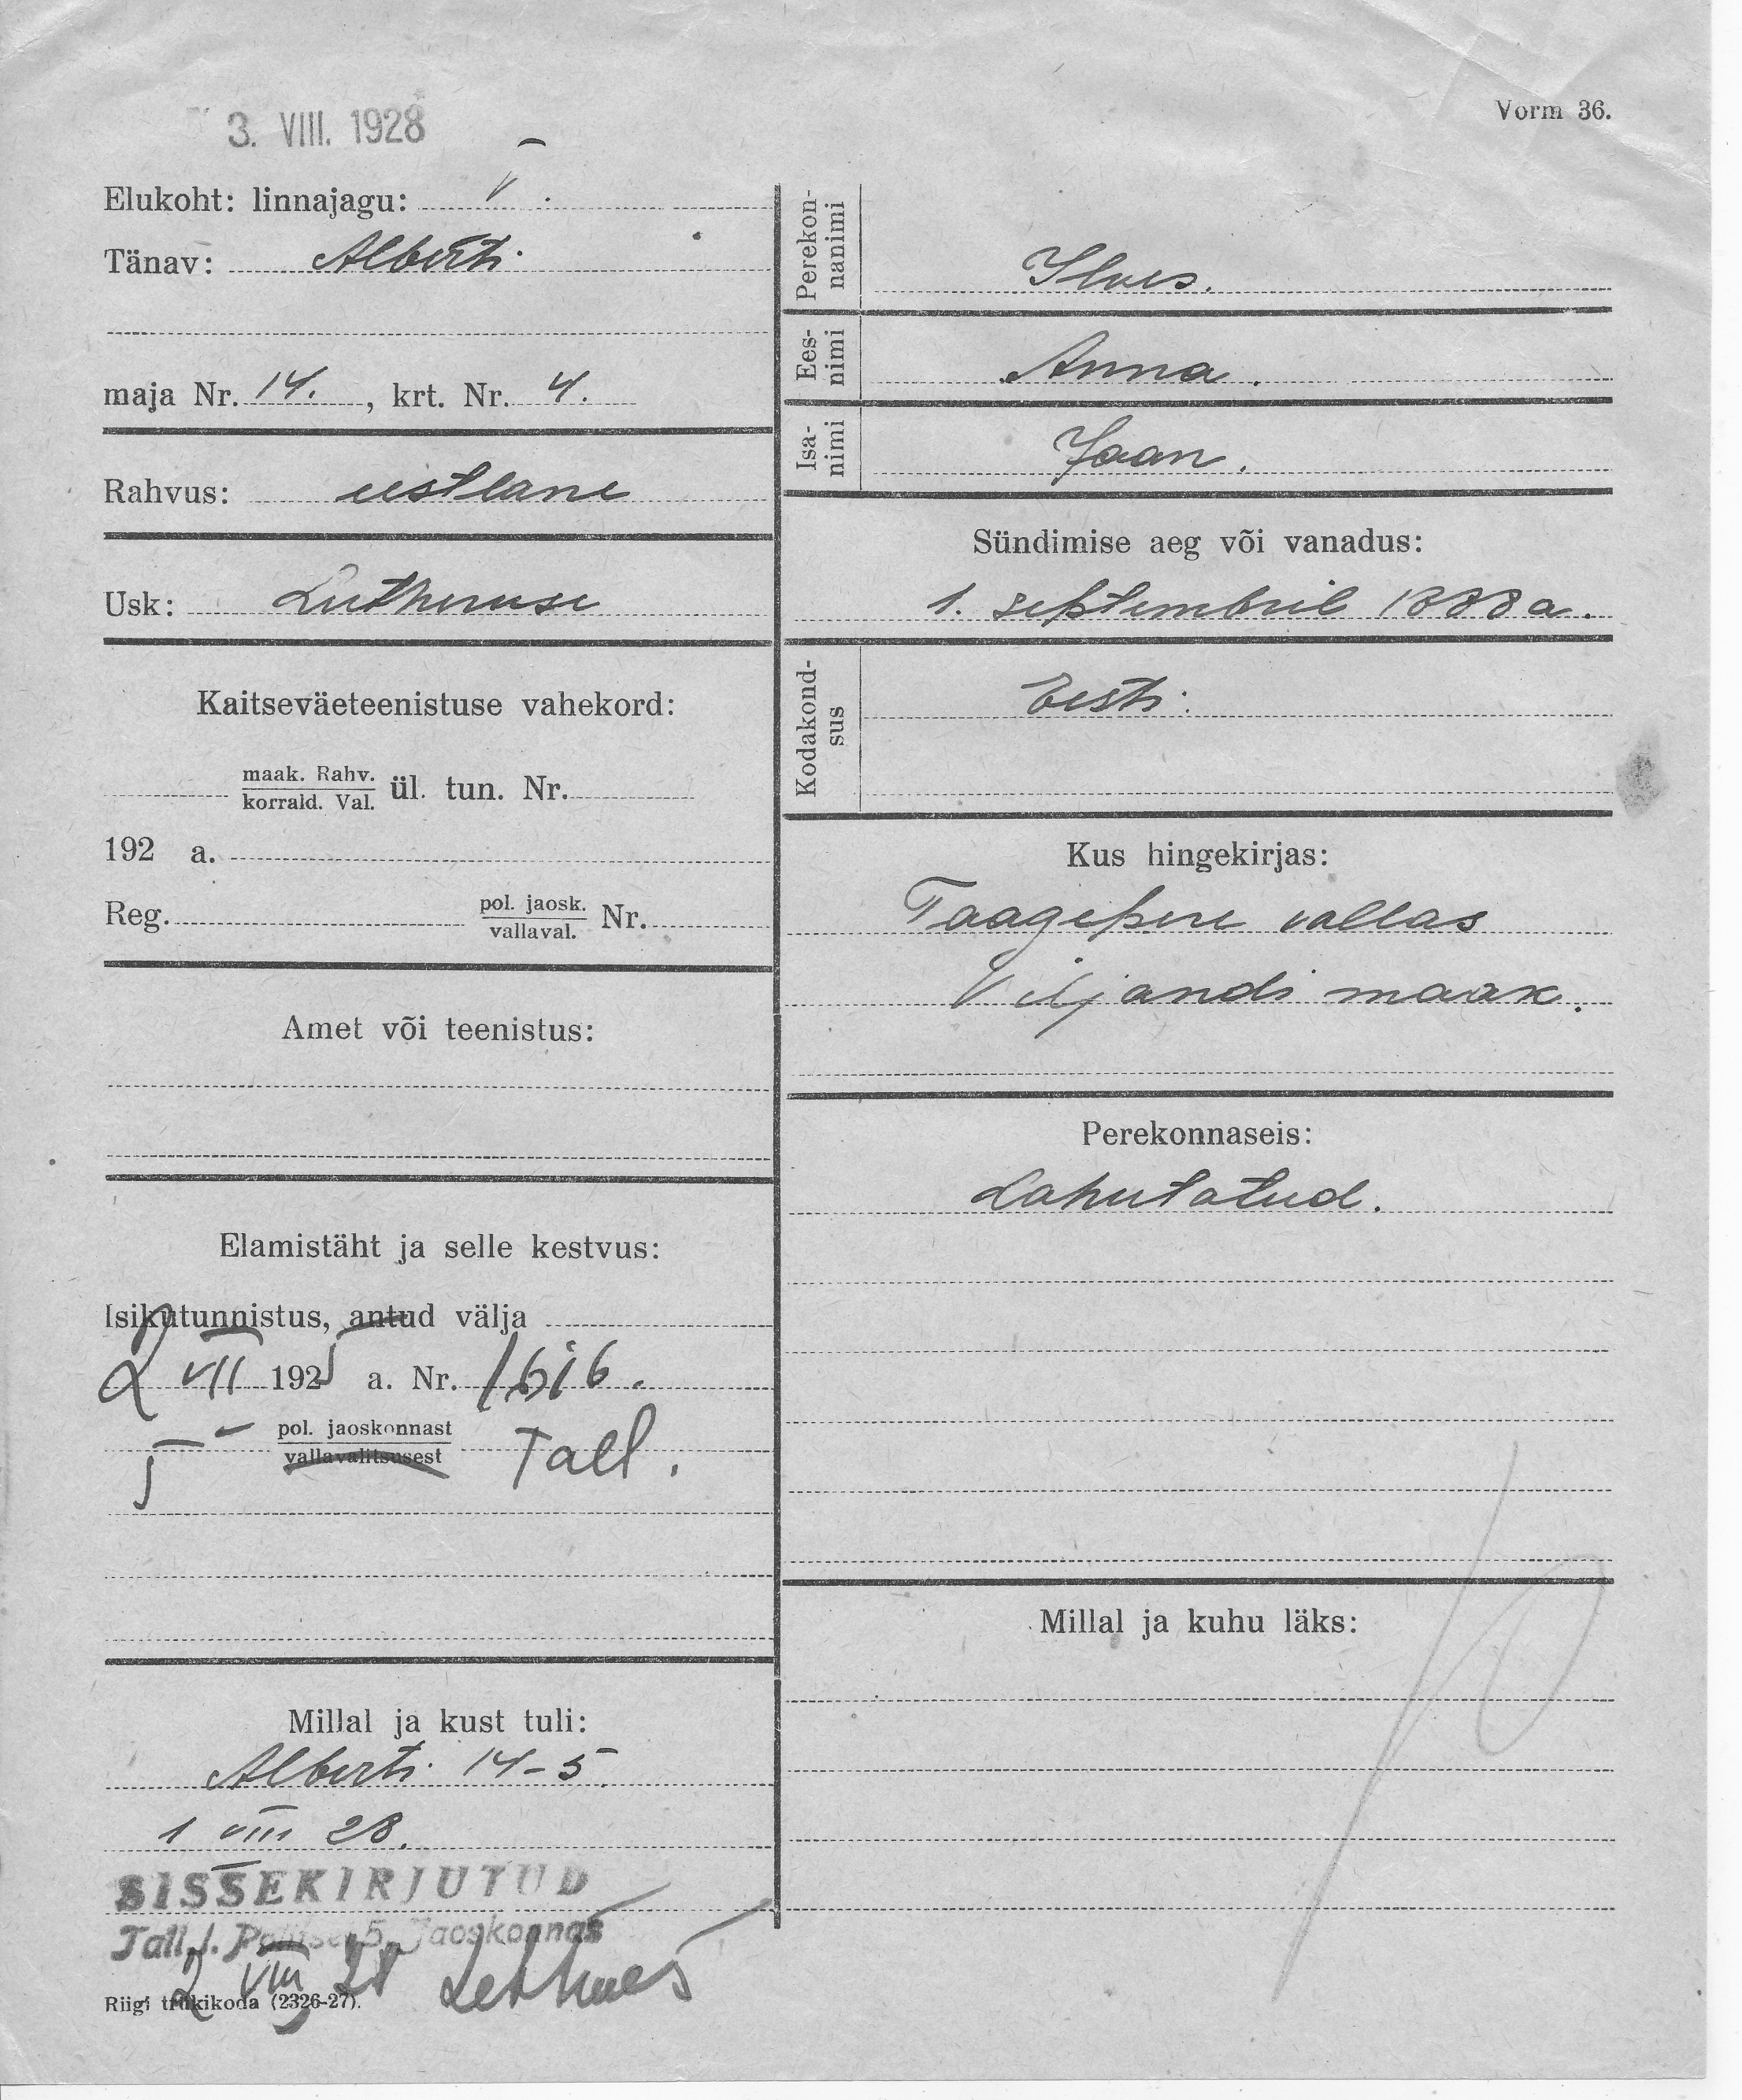 3. VIII. 1928
Vorm 36.
Elukoht: linnajagu: V.
Tänav: Alberti
maja Nr. 14. , krt. Nr. 4.
Rahvus: eestlane
Usk: Lutheruse
Kaitseväeteenistuse vahekord:
maak. Rahv.
korrald. Val. ül. tun. Nr.
192 a.
Reg. pol. jaosk.
vallaval. Nr.
Amet või teenistus:
Elamistäht ja selle kestvus:
Isikutunnistus, antud välja
2 VII 1925 a. Nr. 1616.
pol. jaoskonnast
vallavalitsusest Tall.
Millal ja kust tuli:
Alberti 14-5.
1 VIII 28.
SISSEKIRJUTUD
Tall. l. Politsei 5. Jaoskonnas
2 VIII 28
Riigi trükikoda (2326-27).
Perekon-
nanimi Ilves.
Ees-
nimi Anna.
Isa-
nimi Jaan.
Sündimise aeg või vanadus:
1. septembril 1888 a.
Kodakond-
sus Eesti.
Kus hingekirjas:
Taagepere vallas
Viljandi maak.
Perekonnaseis:
Lahutatud.
Millal ja kuhu läks: